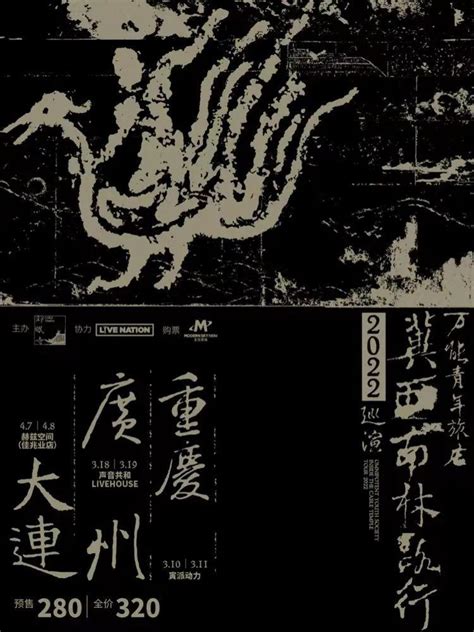 万能青年旅店
冀西南林路行
2022
巡演
OMNIPOTENT YOUTH SOCIETY
INSIDE THE CABLE TEMPLE
TOUR 2022
主办
协力
LIVE NATION
购票
MODERNSKY NOW
重慶
3.10 | 3.11
寅派动力
廣州
3.18 | 3.19
声音共和
LIVEHOUSE
大連
4.7 | 4.8
赫兹空间
(佳兆业店)
预售 280 | 全价 320